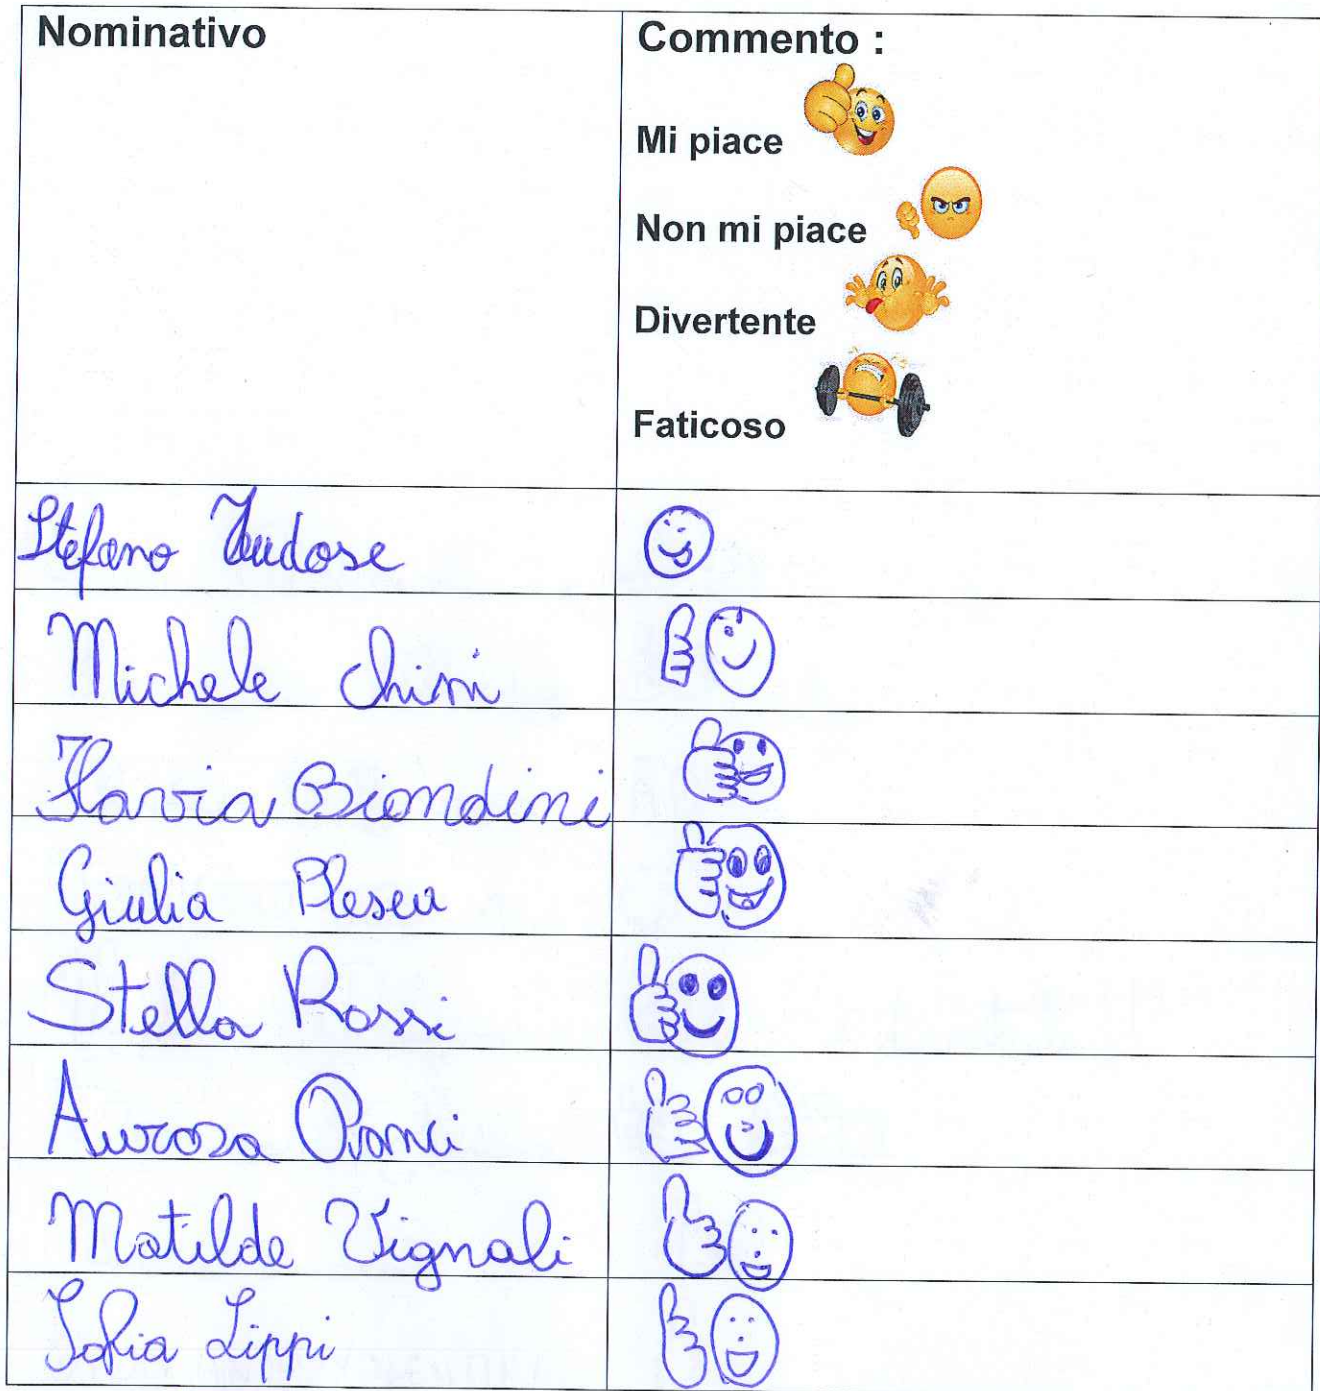 Nominativo
Commento :
Mi piace
Non mi piace
Divertente
Faticoso
Stefano Tudose
Michele Chini
Flavia Biondini
Giulia Plesea
Stella Rossi
Aurora
Matilde Vignali
Sofia Lippi